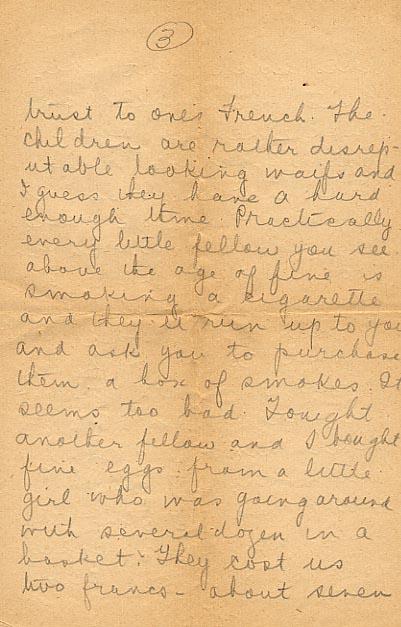 3
trust to one's French. The
children are rather disrep-
utable looking waifs and
I guess they have a hard
enough time. Practically
every little fellow you see
above the age of five is
smoking a cigarette
and they'll run up to you
and ask you to purchase
them a box of smokes. It
seems too bad. Tonight
another fellow and I bought
five eggs from a little
girl who was going around
with several dozen in a
basket. They cost us
two francs - about seven